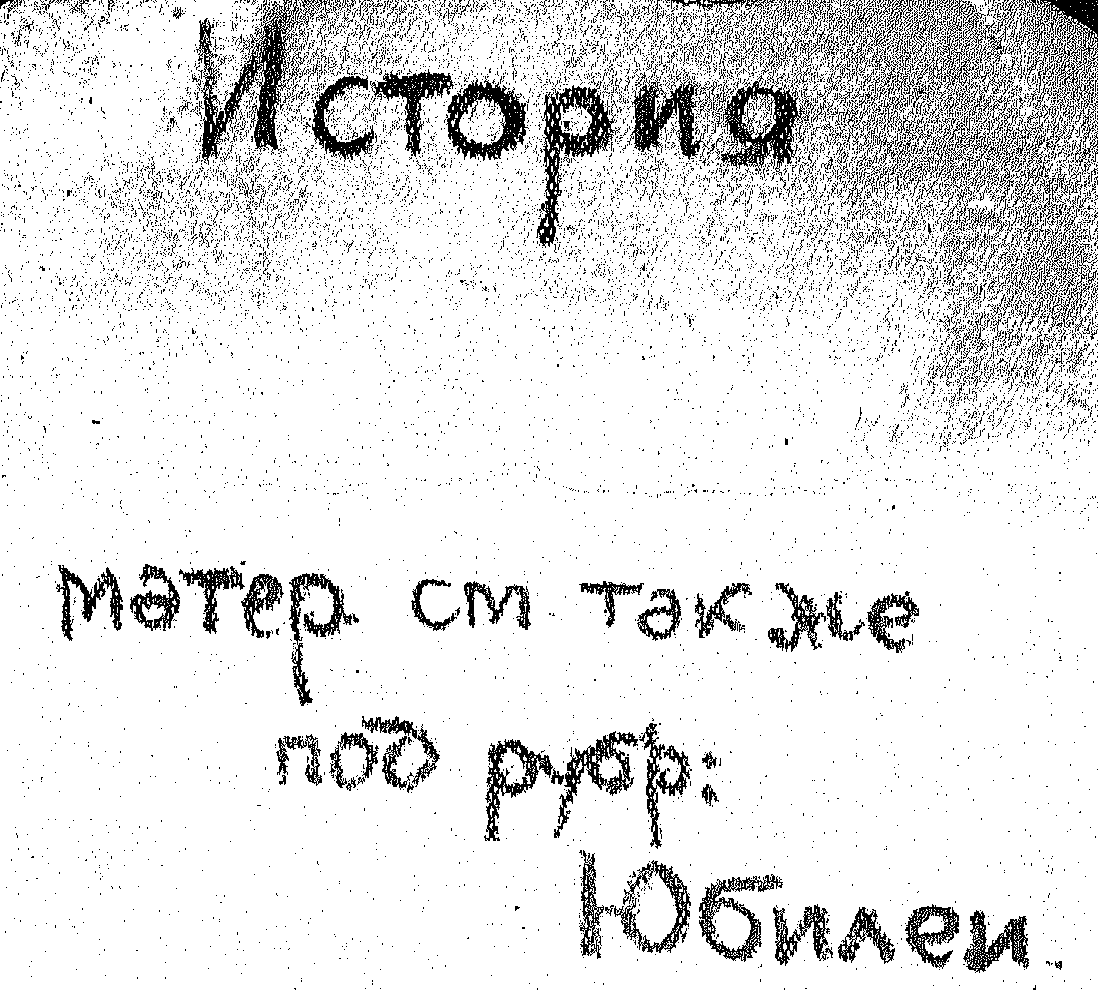 История
матер см также
под рубр:
Юбилеи.